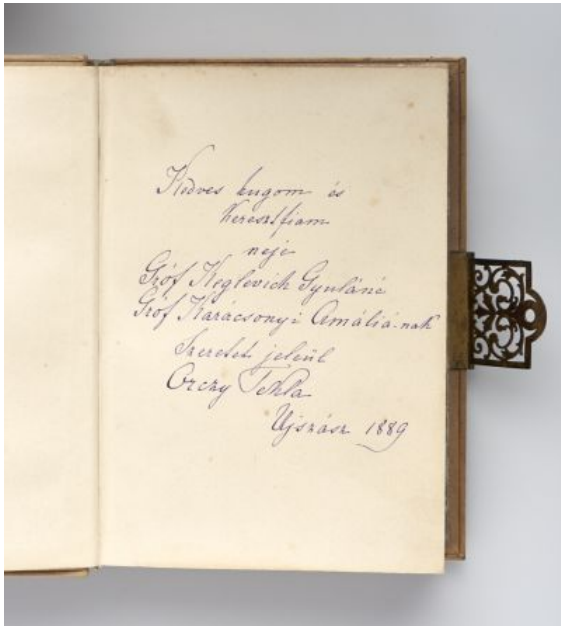 Kedves hugom és
keresztfiam
neje
Gróf Keglevich Gyuláné
Gróf Karácsonyi Amáliá-nak
Szeretet jeleül
Orczy Tekla
Ujszász 1889